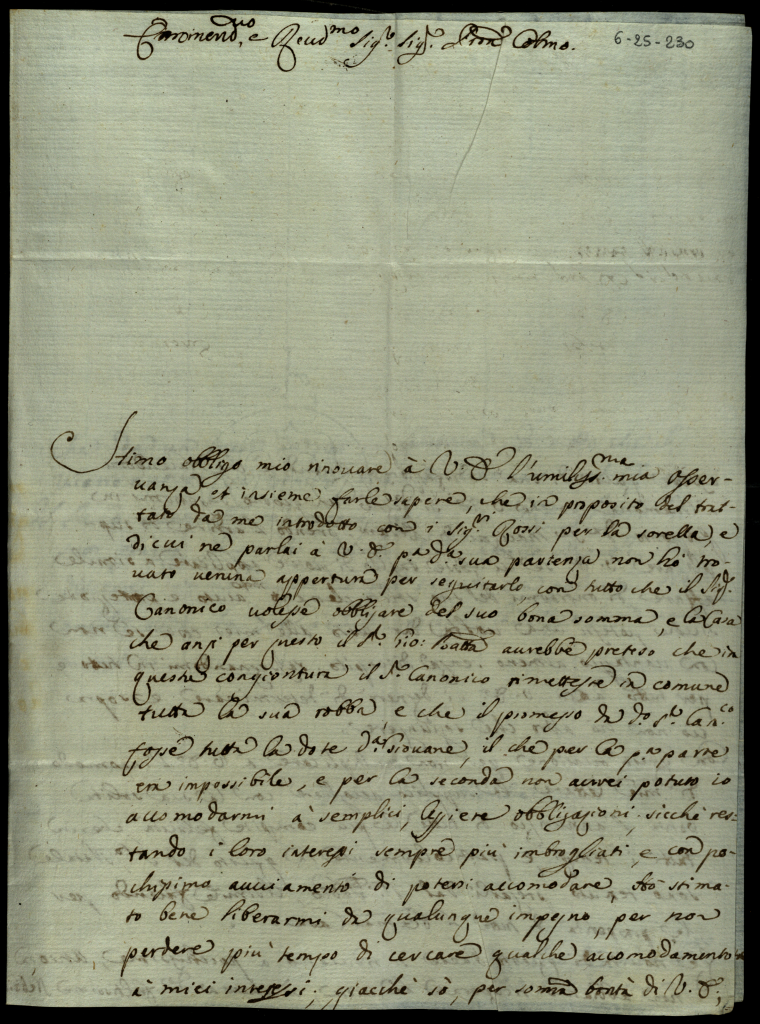 Eminend.mo, e Reud.mo Sig.r Sig.r Pron. Colmo.
6-25-230
Stimo obbligo mio rinouare à V. E. l'umiliss.ma mia osser-
uanza, et insieme farle sapere, che in proposito del trat-
tato da me introdotto con i Sig.ri Rossi per la sorella, e
di cui ne parlai à V. E. p.a d.a sua partenza non hò tro-
uato ueruna appertura per seguitarlo, con tutto che il Sig.r
Canonico uolesse obbligare del suo bona somma, e la Casa
che anzi per questo il S.r Gio: Batta aurebbe preteso che in
questa congiontura il S.r Canonico rimettesse in comune
tutta la sua robba, e che il promesso da d.o S.r Can.co
fosse tutta la dote d.a Giouane, il che per la p.a parte
era impossibile, e per la seconda non aurei potuto io
accomodarmi à semplici, leggiere obbligazioni, sicchè res-
tando i loro interessi sempre più imbrogliati, e con po-
chissimo auuiamento di potersi accomodare, hò stima-
to bene liberarmi da qualunque impegno, per non
perdere più tempo di cercare qualche accomodamento
à miei interessi; giacchè sò, per somma bontà di V. E.,